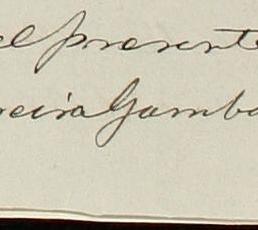 el presente
reira Gamba